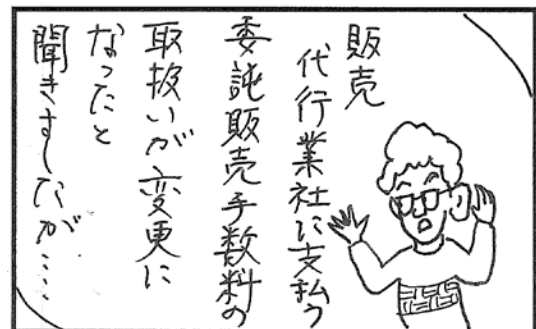 販売
代行業社に支払う
委託販売手数料の
取扱いが変更に
なったと
聞きましたが……